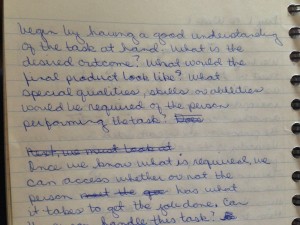 begin by having a good understanding
of the task at hand. What is the
desired outcome? What would the
final product look like? What
special qualities, skills or abilities
would be required of the person
performing the task? Does
Next, we must look at
Once we know what is required, we
can access whether or not the
person meet the has what
it takes to get the job done. Can
handle this task?